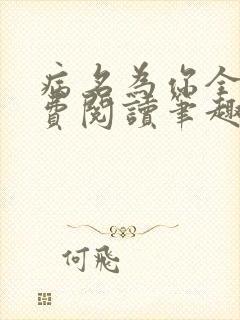 病名為你全
費閱讀筆趣
何飛